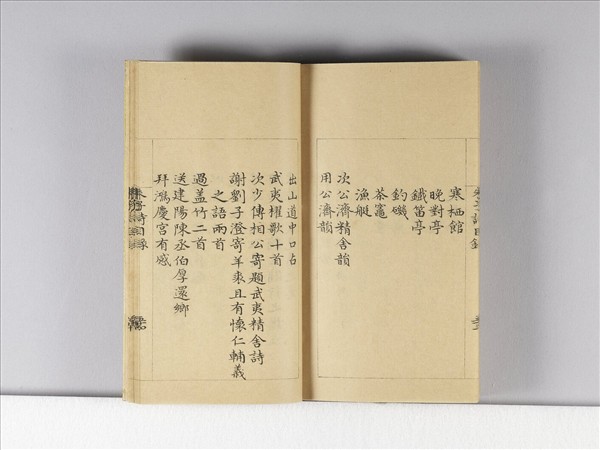 寒栖館
晚對亭
鐵笛亭
釣磯
茶竈
漁艇
次公濟精舍韻
用公濟韻
出山道中口占
武夷櫂歌十首
次少傅相公寄題武夷精舍詩
謝劉子澄寄羊裘且有懷仁輔義
之語兩首
過蓋竹二首
送建陽陳丞伯厚還鄉
拜鴻慶宮有感